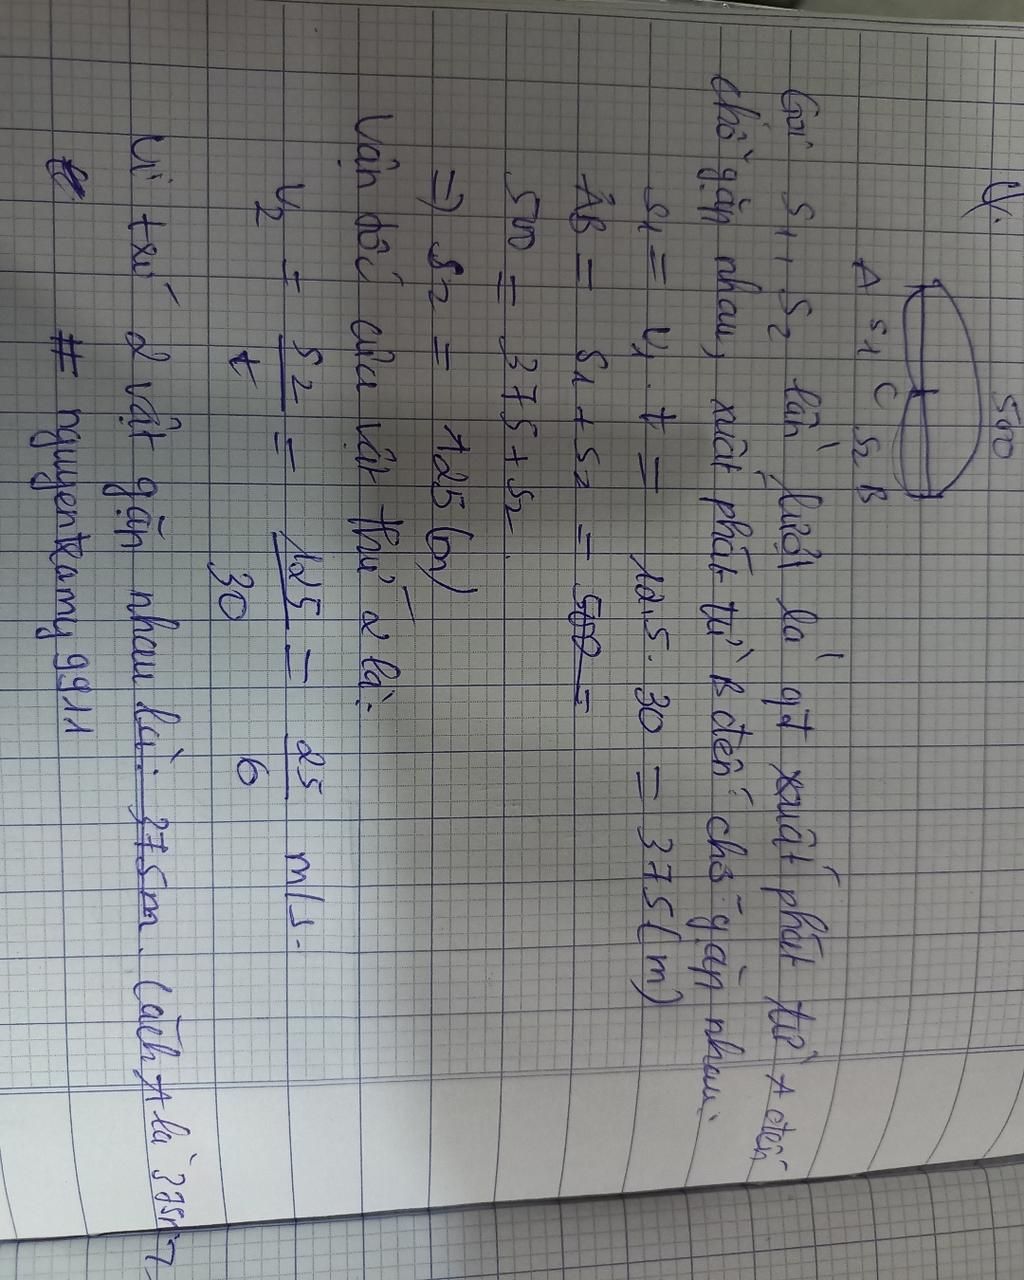 U.
500
A S1 C S2 B
Gọi S1, S2 lần lượt là qđ xuất phát từ A đến
chỗ gặp nhau, xuất phát từ B đến chỗ gặp nhau.
S1 = V1 . t = 12,5 . 30 = 375 (m)
AB = S1 + S2 = 500 =
500 = 375 + S2.
=) S2 = 125 (m)
Vận tốc của vật thứ 2 là:
V2 = S2/t = 125/30 = 25/6 m/s.
Vị trí 2 vật gặp nhau là: 375m. Cách A là 375m
# nguyentramy9911